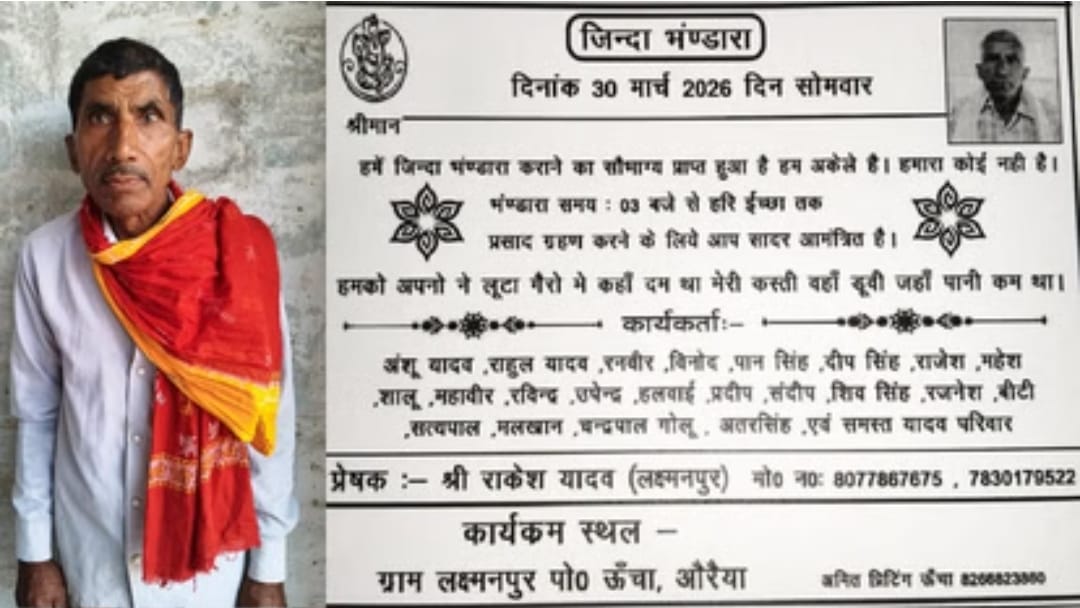 जिन्दा भंण्डारा
दिनांक 30 मार्च 2026 दिन सोमवार
श्रीमान
हमें जिन्दा भंण्डारा कराने का सौभाग्य प्राप्त हुआ है हम अकेले है। हमारा कोई नही है।
भंण्डारा समय : 03 बजे से हरि ईच्छा तक
प्रसाद ग्रहण करने के लिये आप सादर आमंत्रित है।
हमको अपनो ने लूटा गैरो मे कहाँ दम था मेरी कस्ती वहाँ डूवी जहाँ पानी कम था।
कार्यकर्ताः–
अंशू यादव ,राहुल यादव ,रनवीर ,विनोद ,पान सिंह ,दीप सिंह ,राजेश ,महेश
,शालू ,महावीर ,रविन्द्र ,उपेन्द्र ,हलवाई ,प्रदीप ,संदीप ,शिव सिंह ,रजनेश ,बीटी
,सत्यपाल ,मलखान ,चन्द्रपाल गोलू , अतरसिंह ,एवं समस्त यादव परिवार
प्रेषक :– श्री राकेश यादव (लक्ष्मनपुर) मो0 न0: 8077867675 , 7830179522
कार्यकम स्थल –
ग्राम लक्ष्मनपुर पो0 ऊँचा, औरैया
अनित प्रिटिंग ऊँचा 8266823860